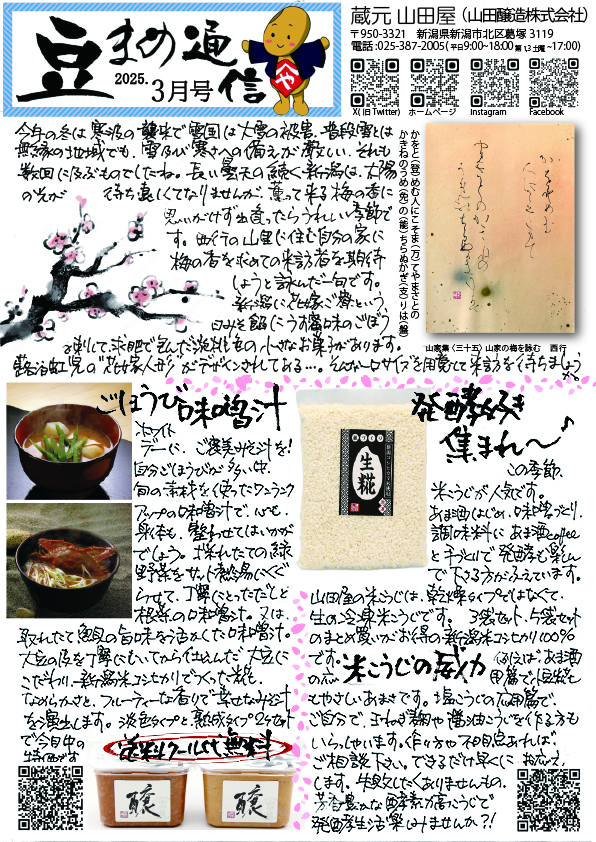 豆まめ通信
2025.3月号
蔵元 山田屋(山田醸造株式会社)
〒950-3321 新潟県新潟市北区葛塚 3119
電話:025-387-2005(平日9:00~18:00 第1,3土曜~17:00)
X(旧Twitter) ホームページ Instagram Facebook
今年の冬は寒波の襲来で雪国は大雪の被害、普段雪とは
無縁の地域でも、雪及び寒さへの備えが厳しい、それも
数回に及ぶものでしたね。長い曇天の続く新潟は、太陽
の光が 待ち遠しくてなりませんが、薫って来る梅の香に
思いがけず出逢ったらうれしい季節で
す。西行の山里に住む自分の家に
梅の香を求めての来訪者を期待
しようと詠んだ一句です。
新潟に花嫁ご寮という
白みそ餡にうす味のごぼう
を刺して求肥で包んだ淡桃色の小さなお菓子があります。
蕗谷虹児の“花嫁人形”がデザインされてある…。そんな一口サイズを用意して来訪を待ちましょうか。
かをと(登)めむ人にこそま(万)てやまさとの
かきねのうめ(免)の(能)ちらぬかぎ(支)りは(盤)
山家集〈三十五〉山家の梅を詠む 西行
ごほうび味噌汁
ホワイト
デーに、ご褒美みそ汁を!
自分ごほうびが多い中、
旬の素材を使ったワンランク
アップの味噌汁で、心も
身体も、整わせてはいかが
でしょう。採れたての緑
野菜をサッと熱湯にくぐ
らせて、丁寧にとっただしと
根菜の味噌汁。又は、
取れたて魚貝の旨味を活かした味噌汁。
大豆の皮を丁寧にむいてから仕込んだ大豆に
こだわり、新潟米コシヒカリでつくった糀も
なめらかさと、フルーティーな香りで幸せなみそ汁
を演出します。淡色タイプと熟成タイプ2ケセット
で今月中の
特価です
送料クール代無料
醸
醸
発酵好き
集まれ~♪
糀づくり
生糀
この季節、
米こうじが人気です。
あま酒はじめ、味噌づくり、
調味料に あま酒coffee
と手づくりで発酵を楽しん
で下さる方がふえています。
山田屋の米こうじは、乾燥タイプではなくて、
生の冷凍米こうじです。 3袋セット、5袋セット
のまとめ買いがお得の新潟米コシヒカリ100%
です。
米こうじの威力
例えば、あま酒
もやさしいあまさです。塩こうじの応用篇で、
ご自分で、玉ねぎ麹や醤油こうじを作る方も
いらっしゃいます。作り方や不明点あれば、
ご相談下さい。できるだけ早くに お応え
します。失敗したくありませんもの。
芳香豊かな酵素力高いこうじで
発酵生活楽しみませんか?!